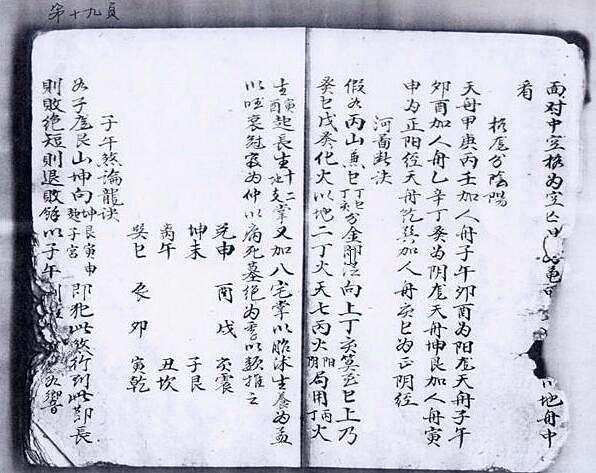 第十九頁
面对中宫 为空亡 地舟中
看
分陰陽
天舟甲庚丙壬加人舟子午卯酉为阳龙天舟子午
卯酉加人舟乙辛丁癸为阴龙天舟坤艮加人舟寅
申为正阳经天舟乾巽加人舟亥巳为正阴经
河啚 诀
假如丙山兼巳丁巳丁亥分金 向上丁亥算至巳上乃
癸巳戊癸化火以地二丁火天七丙火阴阳局用丁丙火
生寅酉起長生十二地支掌又加八宅掌以胎沐生养为孟
以旺衰冠官为仲以病死墓绝为季以類推之
兑申 酉戌 亥震
坤未 子艮
离午 丑坎
巽巳 辰卯 寅乾
子午煞論龍诀
如子龙艮山坤向坤艮寅申起子宫即犯此煞行到此 長
則敗绝短則退敗餘以子午 如響